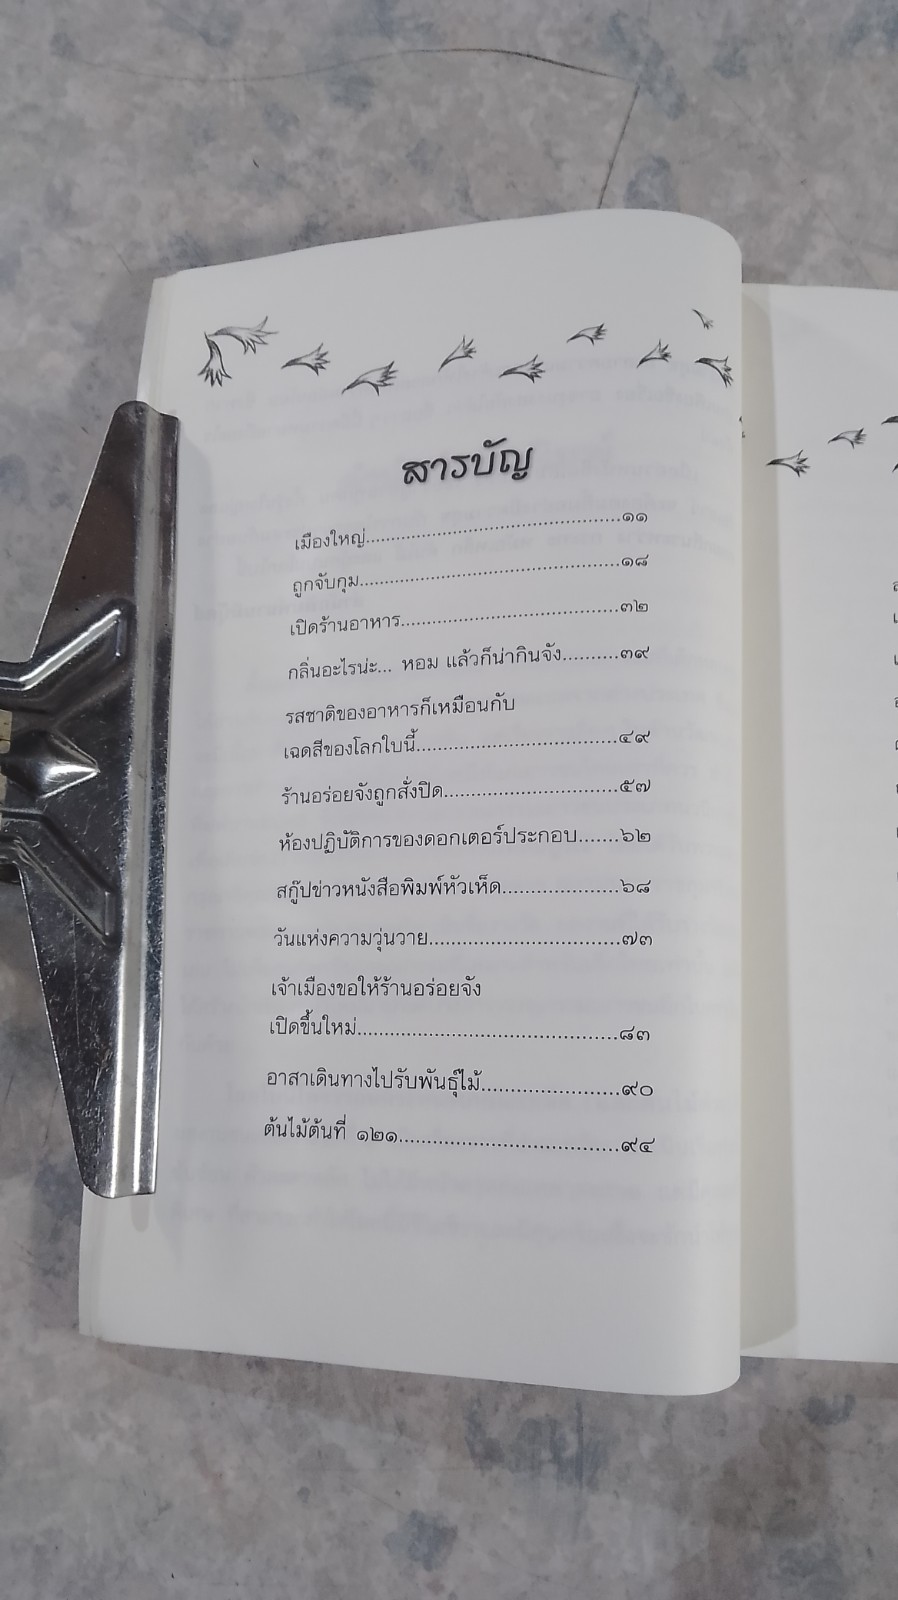 สารบัญ
เมืองใหญ่............................................๑๑
ถูกจับกุม.............................................๑๘
เปิดร้านอาหาร.....................................๓๒
กลิ่นอะไรน่ะ... หอม แล้วก็น่ากินจัง..........๓๙
รสชาติของอาหารก็เหมือนกับ
เฉดสีของโลกใบนี้..................................๔๙
ร้านอร่อยจังถูกสั่งปิด.............................๕๗
ห้องปฏิบัติการของดอกเตอร์ประกอบ.......๖๒
สกู๊ปข่าวหนังสือพิมพ์หัวเห็ด....................๖๘
วันแห่งความวุ่นวาย................................๗๓
เจ้าเมืองขอให้ร้านอร่อยจัง
เปิดขึ้นใหม่............................................๘๓
อาสาเดินทางไปรับพันธุ์ไม้.......................๙๐
ต้นไม้ต้นที่ ๑๒๑.....................................๙๔